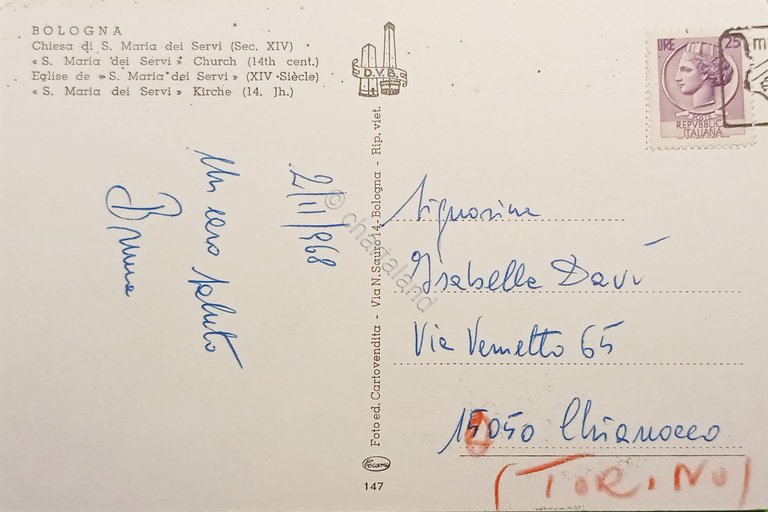 BOLOGNA
Chiesa di S. Maria dei Servi (Sec. XIV)
« S. Maria dei Servi » Church (14th cent.)
Eglise de « S. Maria dei Servi » (XIV Siècle)
« S. Maria dei Servi » Kirche (14. Jh.)
D.V.B.
LIRE 25
POSTE
REPVBBLICA
ITALIANA
2/11/968
Un caro saluto
Bruna
Foto ed. Cartovendita - Via N. Sauro 14 - Bologna - Rip. viet.
© chartaland
Signorina
Isabella Davì
Via Vernetto 65
15050 Chianocco
(TORINO)
147